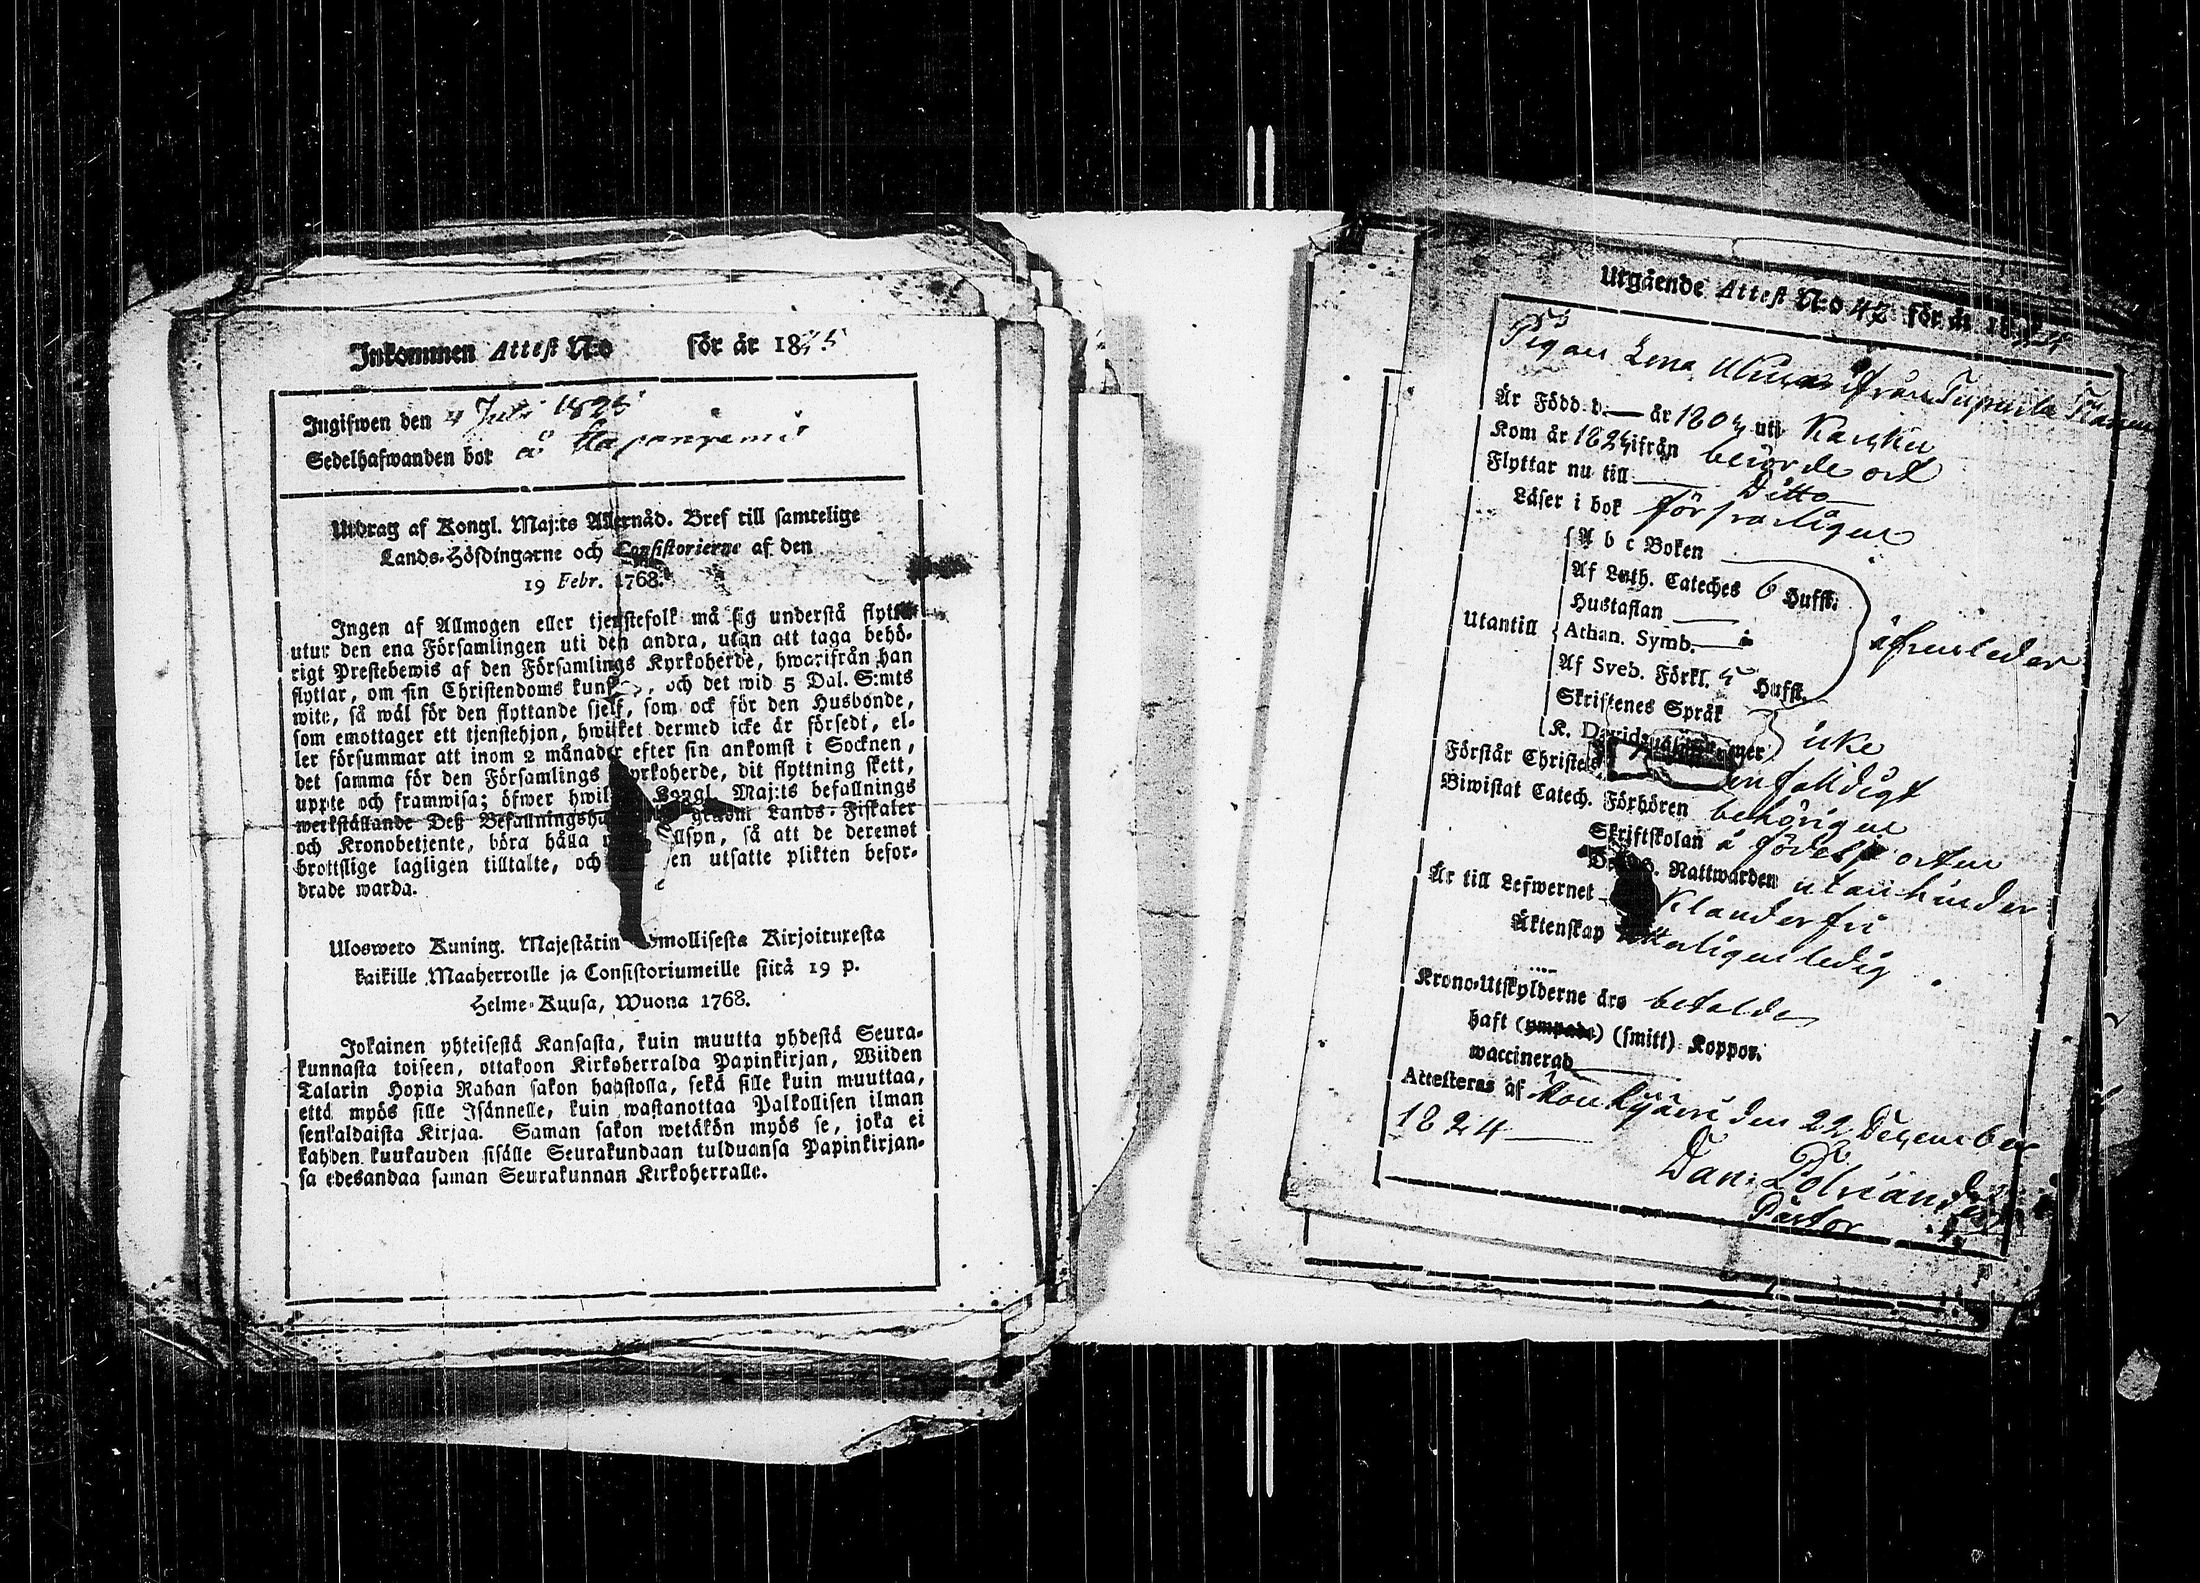 Inkommen Attest N:o för år 1825
Ingifwen den 4 Juli 1825
Sedelhafwanden bor å Haapaniemi
Utdrag af Kongl. Maj:ts Allernåd. Bref till samtelige
Lands-Höfdingarne och Consistorierne af den
19 Febr. 1768.
Ingen af Allmogen eller tjenstefolk må sig understå flytta
utur den ena Församlingen uti den andra, utan att taga behö-
rigt Prestebewis af den Församlings Kyrkoherde, hwarifrån han
flyttar, om sin Christendoms kunskap, och det wid 5 Dal. S:mts
wite, så wäl för den flyttande sjelf, som ock för den Husbonde,
som emottager ett tjenstehjon, hwilket dermed icke är försedt, el-
ler försummar att inom 2 månader efter sin ankomst i Socknen,
det samma för den Församlings Kyrkoherde, dit flyttning skett,
uppte och framwisa; öfwer hwil Kongl. Maj:ts befallnings
werkställande Deß Befallningshaf genom Lands-Fiskaler
och Kronobetjente, böra hålla llsyn, så att de deremot
brottslige lagligen tilltalte, och en utsatte plikten befor-
drade warda.
Uloswetо Kuning. Majestätin Armollisesta Kirjoituxesta
kaikille Maaherroille ja Consistoriumeille siitä 19 p.
Helme-Kuusa, Wuona 1768.
Jokainen yhteisestä Kansasta, kuin muutta yhdestä Seura-
kunnasta toiseen, ottakoon Kirkoherralda Papinkirjan, Wiiden
Talarin Hopia Rahan sakon haastolla, sekä sille kuin muuttaa,
että myös sille Isännelle, kuin wastanottaa Palkollisen ilman
senkaldaista Kirjaa. Saman sakon wetäkön myös se, joka ei
kahden kuukauden sisälle Seurakundaan tulduansa Papinkirjan-
sa edesandaa saman Seurakunnan Kirkoherralle.
Utgående Attest N:o 42 för år 1824
Pigan Lena ifrån
Är Född d. — år 180 uti Karkku
Kom år 182 ifrån berörde ort
Flyttar nu till — Ditto
Läser i bok försvarligen
Utantill
A b c Boken
Af Luth. Cateches 6 Hufst.
Hustaflan —
Athan. Symb. —
Af Sveb. Förkl. 5 Hufst.
äfvenledes
Skriftenes Språk
K. Davids mer
icke
Förstår Christe enfaldigt
Biwistat Catech. Förhören behörigen
Skriftskolan å födelse orten
D. H. Nattwarden utan hinder
Är till Lefwernet Klanderfri
Äktenskap ledig
Krono-Utskylderne äro betalde
haft (ympade) (smitt) Koppor.
waccinerad —
Attesteras af Mouhijärvi den 22 December
1824 —
Dan: Polviander
Pastor